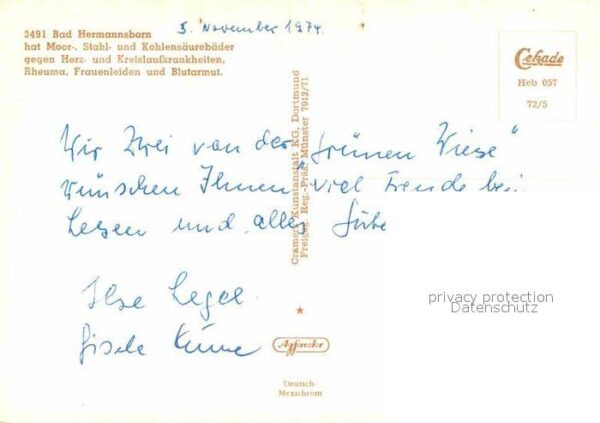 3491 Bad Hermannsborn
hat Moor-, Stahl- und Kohlensäurebäder
gegen Herz- und Kreislaufkrankheiten,
Rheuma, Frauenleiden und Blutarmut.
5. November 1974.
Cekade
Heb 057
72/5
Wir Zwei von der „Grünen Wiese“
wünschen Ihnen viel Freude bei
Lesen und alles Gute
Ilse
Gisela
Cramers Kunstanstalt KG, Dortmund
Freigeg. Reg.-Präs. Münster 7912/71
Agfacolor
Deutsch-
Mexichrom
privacy protection
Datenschutz